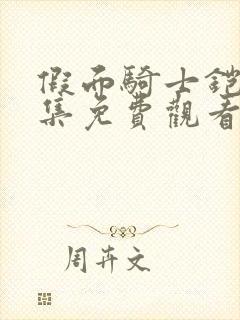 假面騎士鎧
集免費觀看
周卉文